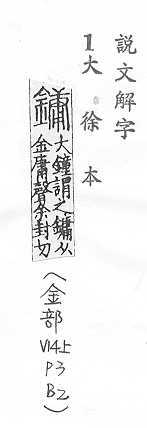 説文解字
1大徐本
鏞
大鐘謂之鏞从
金庸聲余封切
(金部
V14上
P3
B2)